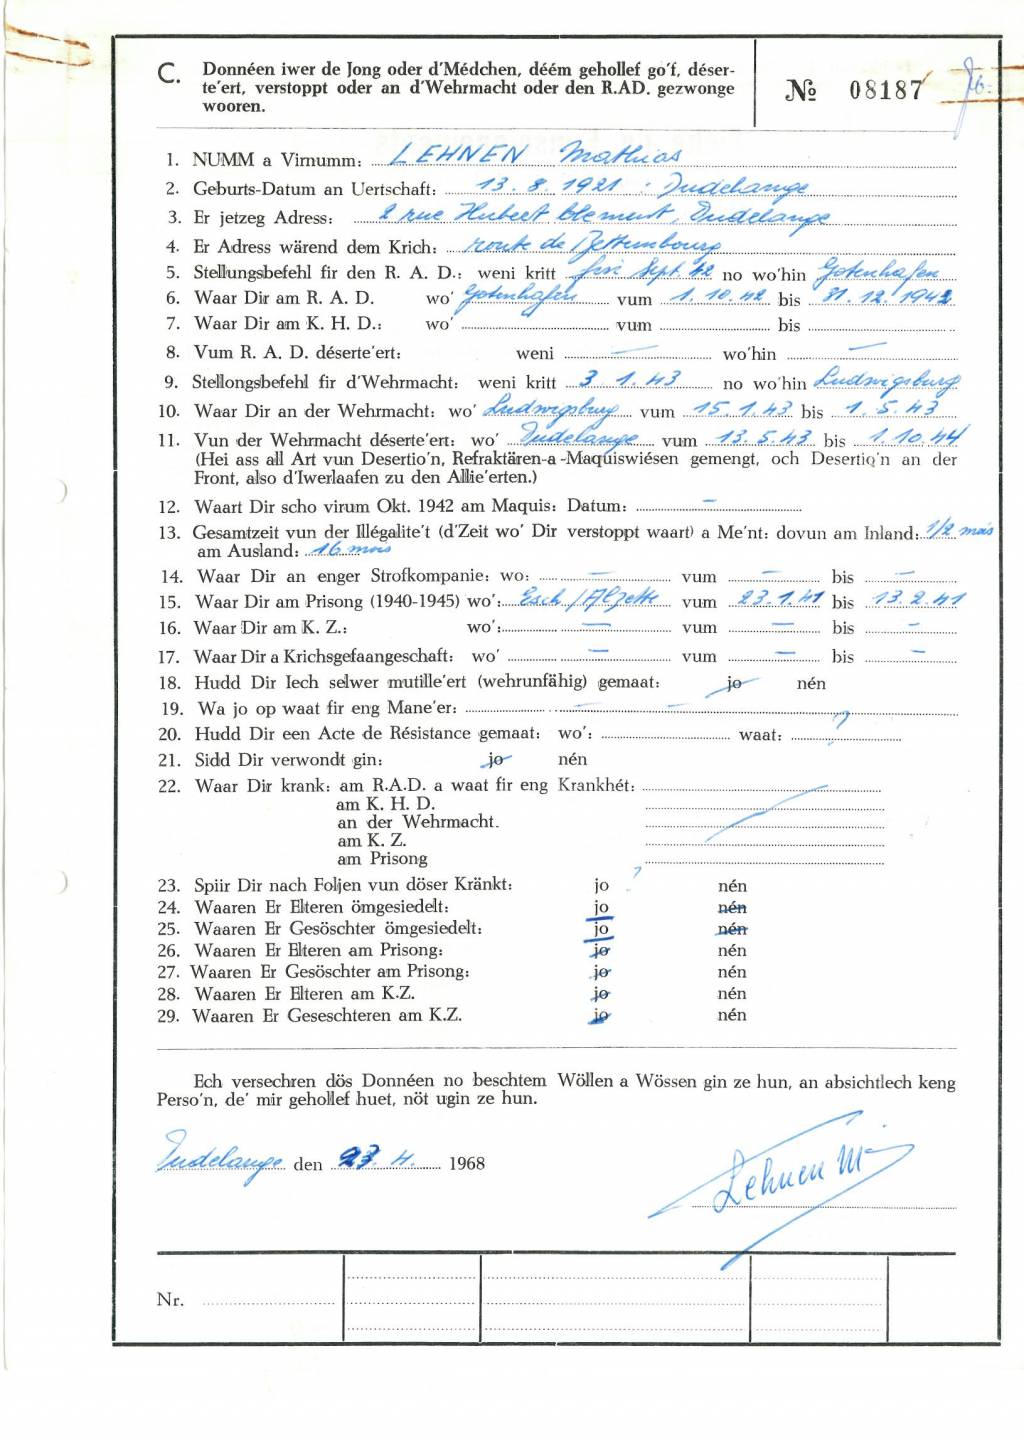 C. Donnéen iwer de Jong oder d'Médchen, déém gehollef go'f, déser-
te'ert, verstoppt oder an d'Wehrmacht oder den R.AD. gezwonge
wooren.
№ 08187
1. NUMM a Virnumm: LEHNEN Mathias
2. Geburts-Datum an Uertschaft: 13.8.1921 : Dudelange
3. Er jetzeg Adress: 2 rue Hubert Clement, Dudelange
4. Er Adress wärend dem Krich: route de Bettembourg
5. Stellungsbefehl fir den R. A. D.: weni kritt fin Sept. 42 no wo'hin Gotenhafen
6. Waar Dir am R. A. D. wo' Gotenhafen vum 1.10.42 bis 31.12.1942
7. Waar Dir am K. H. D.: wo' vum bis
8. Vum R. A. D. déserte'ert: weni — wo'hin —
9. Stellongsbefehl fir d'Wehrmacht: weni kritt 3.1.43 no wo'hin Ludwigsburg
10. Waar Dir an der Wehrmacht: wo' Ludwigsburg vum 15.1.43 bis 1.5.43
11. Vun der Wehrmacht déserte'ert: wo' Dudelange vum 13.5.43 bis 1.10.44
(Hei ass all Art vun Desertio'n, Refraktären-a-Maquiswiésen gemengt, och Desertio'n an der
Front, also d'Iwerlaafen zu den Allie'erten.)
12. Waart Dir scho virum Okt. 1942 am Maquis: Datum: —
13. Gesamtzeit vun der Illégalite't (d'Zeit wo' Dir verstoppt waart) a Me'nt: dovun am Inland: 1/2 mois
am Ausland: 16 mois
14. Waar Dir an enger Strofkompanie: wo: — vum — bis —
15. Waar Dir am Prisong (1940-1945) wo': Esch/Alzette vum 23.1.41 bis 13.2.41
16. Waar Dir am K. Z.: wo': — vum — bis —
17. Waar Dir a Krichsgefaangeschaft: wo' — vum — bis —
18. Hudd Dir Iech selwer mutille'ert (wehrunfähig) gemaat: jo nén
19. Wa jo op waat fir eng Mane'er: — —
20. Hudd Dir een Acte de Résistance gemaat: wo': waat: ?
21. Sidd Dir verwondt gin: jo nén
22. Waar Dir krank: am R.A.D. a waat fir eng Krankhét:
am K. H. D.
an der Wehrmacht.
am K. Z.
am Prisong
23. Spiir Dir nach Foljen vun döser Kränkt: jo ? nén
24. Waaren Er Elteren ömgesiedelt: jo nén
25. Waaren Er Gesöschter ömgesiedelt: jo nén
26. Waaren Er Elteren am Prisong: jo nén
27. Waaren Er Gesöschter am Prisong: jo nén
28. Waaren Er Elteren am K.Z. jo nén
29. Waaren Er Geseschteren am K.Z. jo nén
Ech versechren dös Donnéen no beschtem Wöllen a Wössen gin ze hun, an absichtlech keng
Perso'n, de' mir gehollef huet, nöt ugin ze hun.
Dudelange den 23.4. 1968
Lehnen M
Nr.